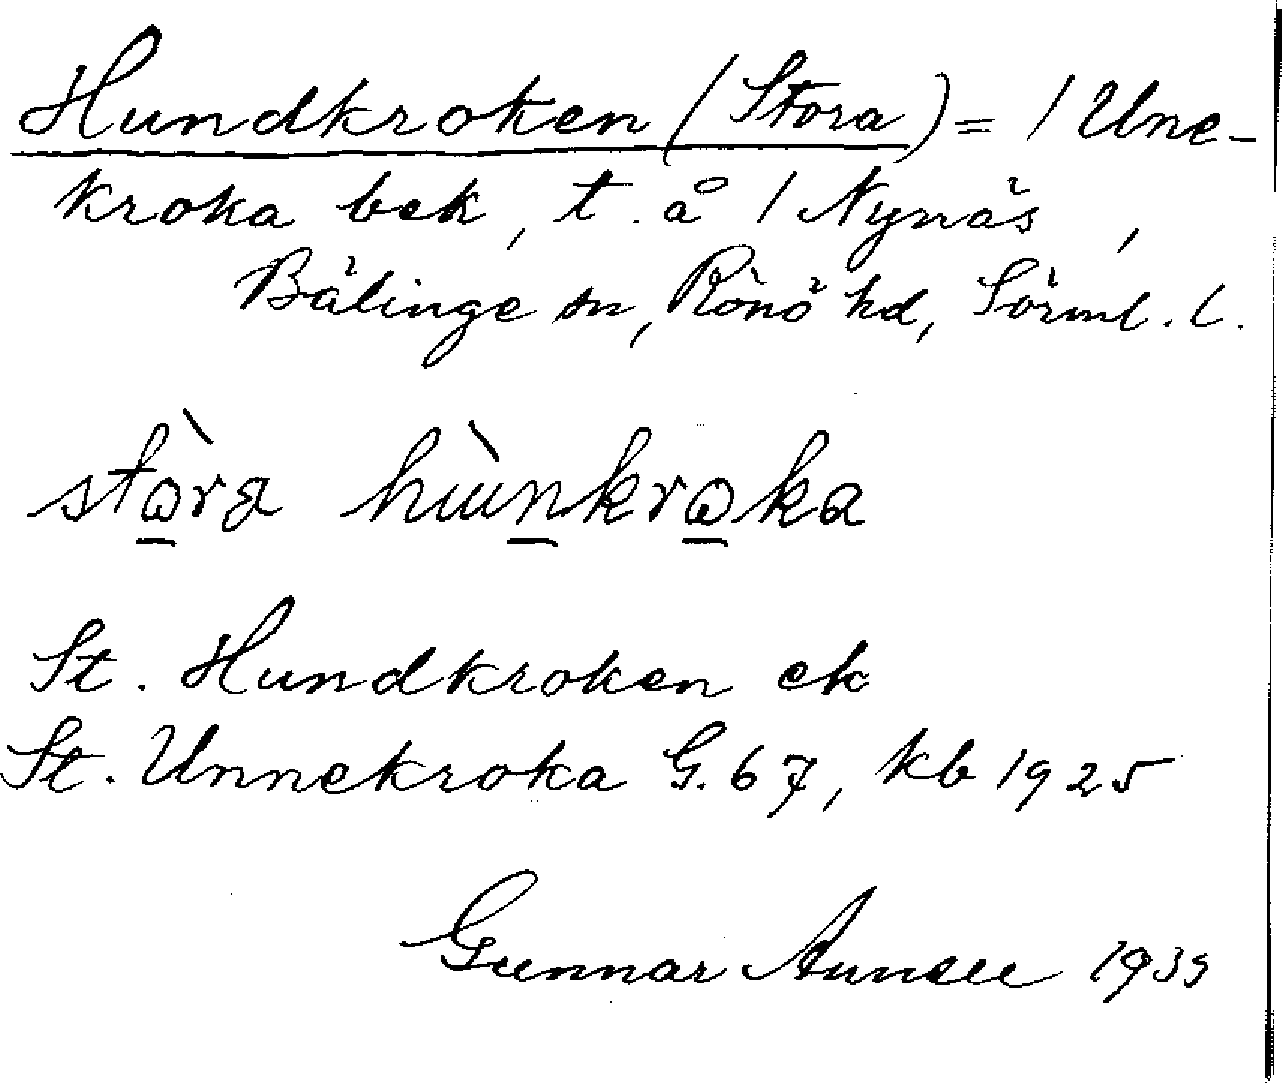 Hundkroken (Stora) = / Une-
kroka bek, t. å / Nynäs,
Bälinge sn, Rönö hd, Sörml. l.
stora hunkroka
St. Hundkroken ek
St. Unnekroka G. 67, kb 1925
Gunnar 1935